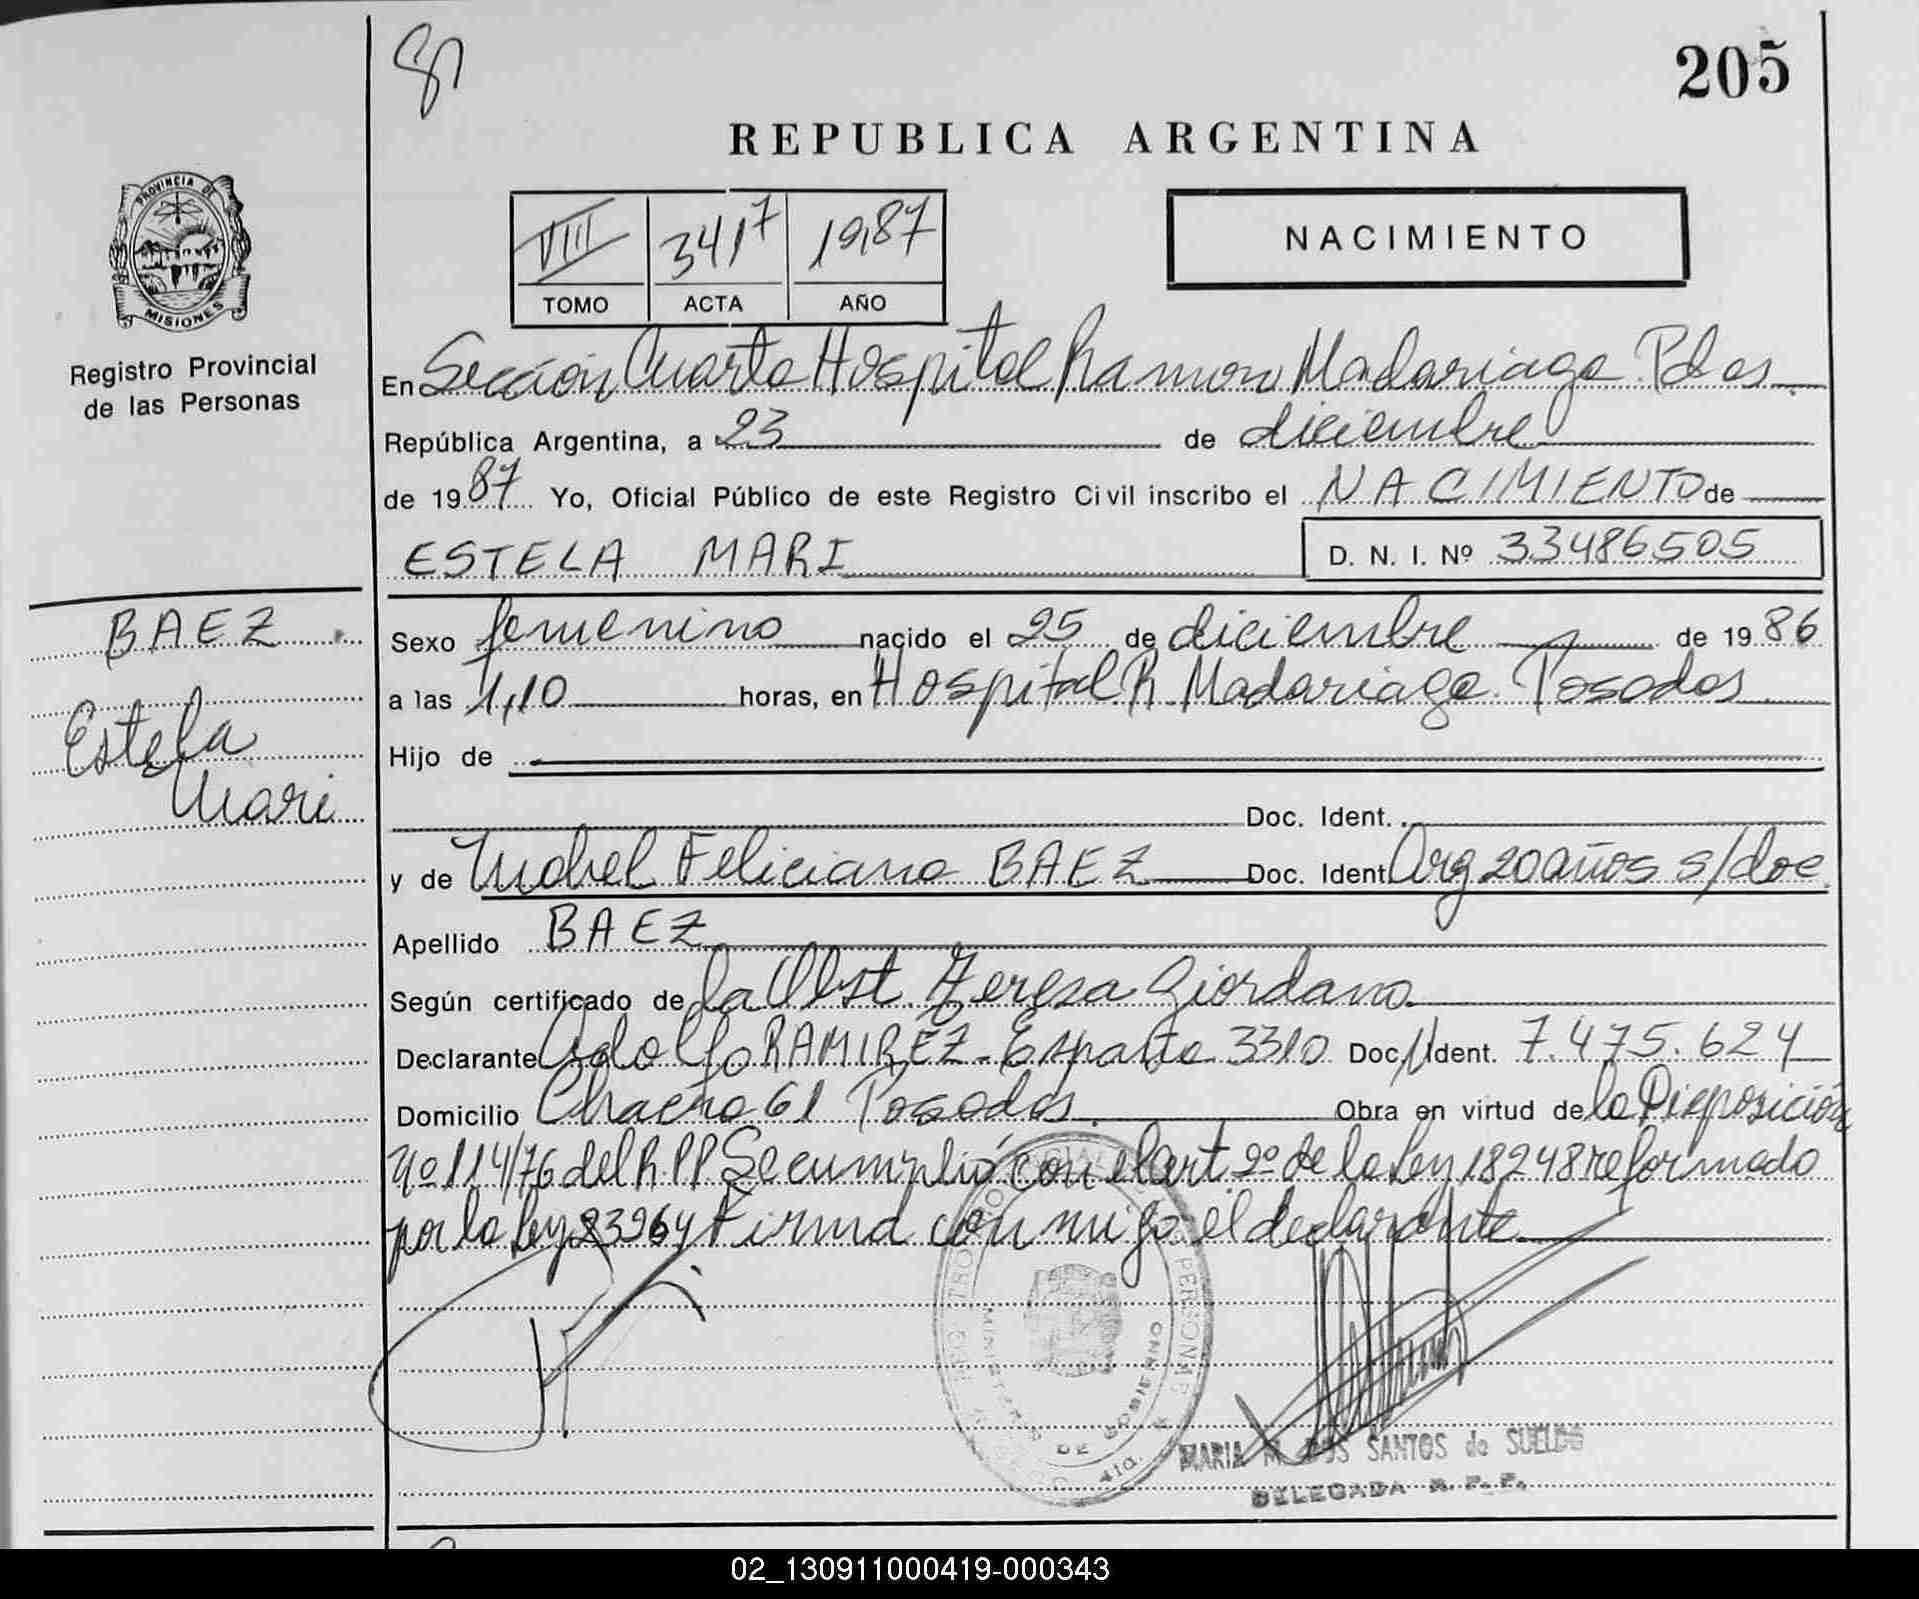 205
REPUBLICA ARGENTINA
PROVINCIA DE
MISIONES
Registro Provincial
de las Personas
VIII 3417 1987
TOMO ACTA AÑO
NACIMIENTO
En Sección Cuarta Hospital Ramon Madariaga Pdas
República Argentina, a 23 de diciembre
de 1987 Yo, Oficial Público de este Registro Civil inscribo el NACIMIENTO de
ESTELA MARI D. N. I. Nº 33486505
BAEZ
Estela
Mari
Sexo femenino nacido el 25 de diciembre de 1986
a las 1,10 horas, en Hospital R. Madariaga Posadas
Hijo de
Doc. Ident.
y de Mabel Feliciana BAEZ Doc. Ident Arg 20 años s/doc
Apellido BAEZ
Según certificado de la Obst. Teresa Giordano
Declarante Adolfo RAMIREZ - España 3310 Doc. Ident. 7.475.624
Domicilio Chacra 61 Posadas Obra en virtud de la Disposición
nº 114/76 del R.P.P. Se cumplió con el art 2º de la Ley 18248 reformado
por la Ley 23264 Firma con migo el declarante
MINISTERIO DE GOBIERNO
MARIA M. DOS SANTOS de SUELDO
DELEGADA R. P. P.
02_130911000419-000343